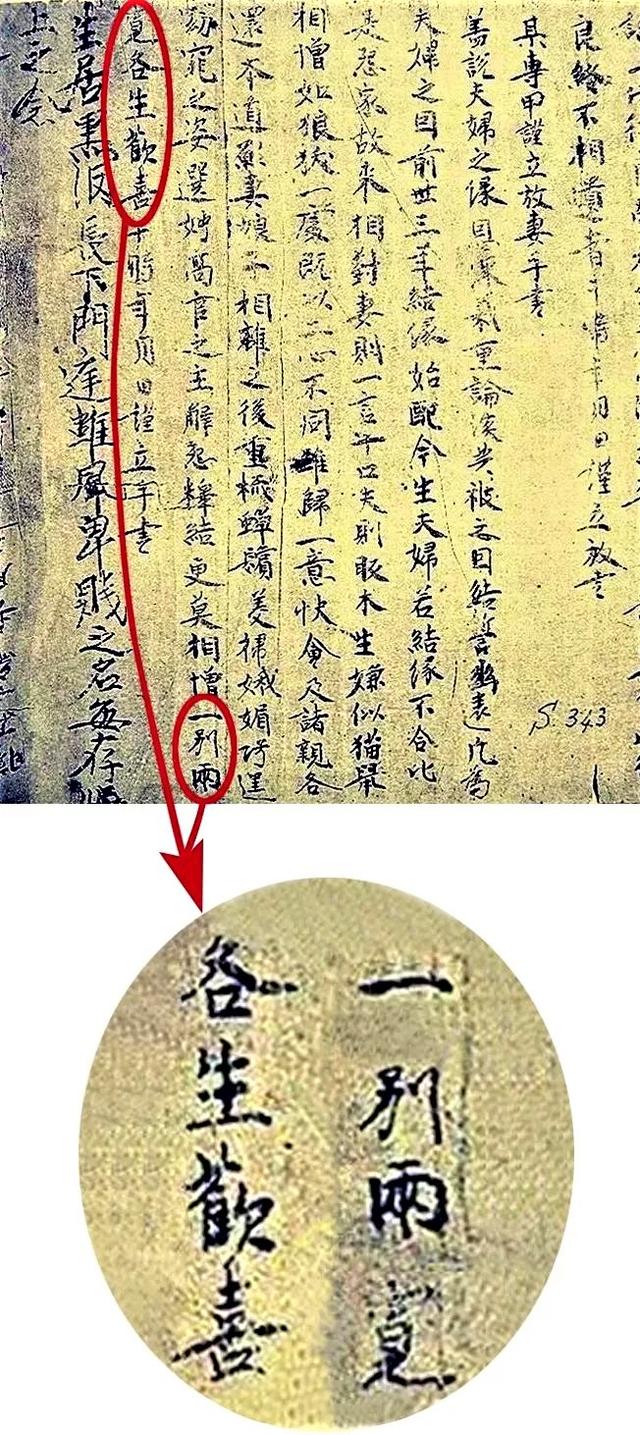 良終不相遺者于時年月日謹立放書
某專甲謹立放妻手書
蓋說夫婦之緣恩深義重論談共被之因結誓幽遠凡為
夫婦之因前世三年結緣始配今生夫婦若結緣不合比
是怨家故來相對妻則一言十口夫則眅木生嫌似猫鼠
相憎如狼㹸一處既以二心不同難歸一意快會及諸親各
還本道願妻娘子相離之後重梳蟬鬢美掃娥媚巧逞
窈窕之姿選娉高官之主解怨釋結更莫相憎一別兩
寬各生歡喜于時年月日謹立手書
生居長下門庭雖屬卑賤之名每存
上之念
S.343
一別兩寬
各生歡喜